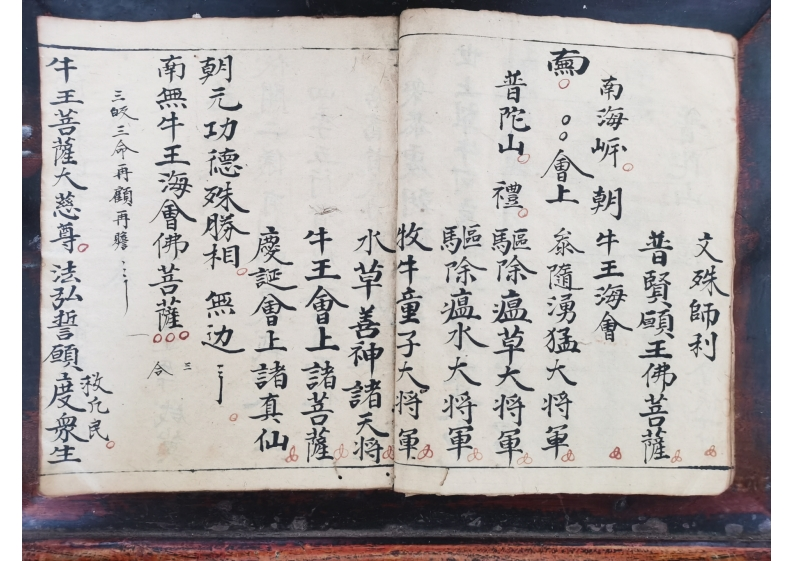 文殊師利
普賢願王佛菩薩
南海岸 朝 牛王海會
會上 叅隨湧猛大將軍
普陀山 禮 驅除瘟草大將軍
驅除瘟水大將軍
牧牛童子大將軍
水草善神諸天將
牛王會上諸菩薩
慶誕會上諸真仙
朝元功德殊勝相 無边
南無牛王海會佛菩薩 三合
三皈三命再顧再瞻
牛王菩薩大慈尊 法弘誓願度衆生
救凢民